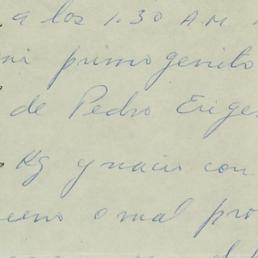 a los 1.30 A.M.
mi primogenito
de Pedro Erige
Kg y nacio con
bueno o mal pro